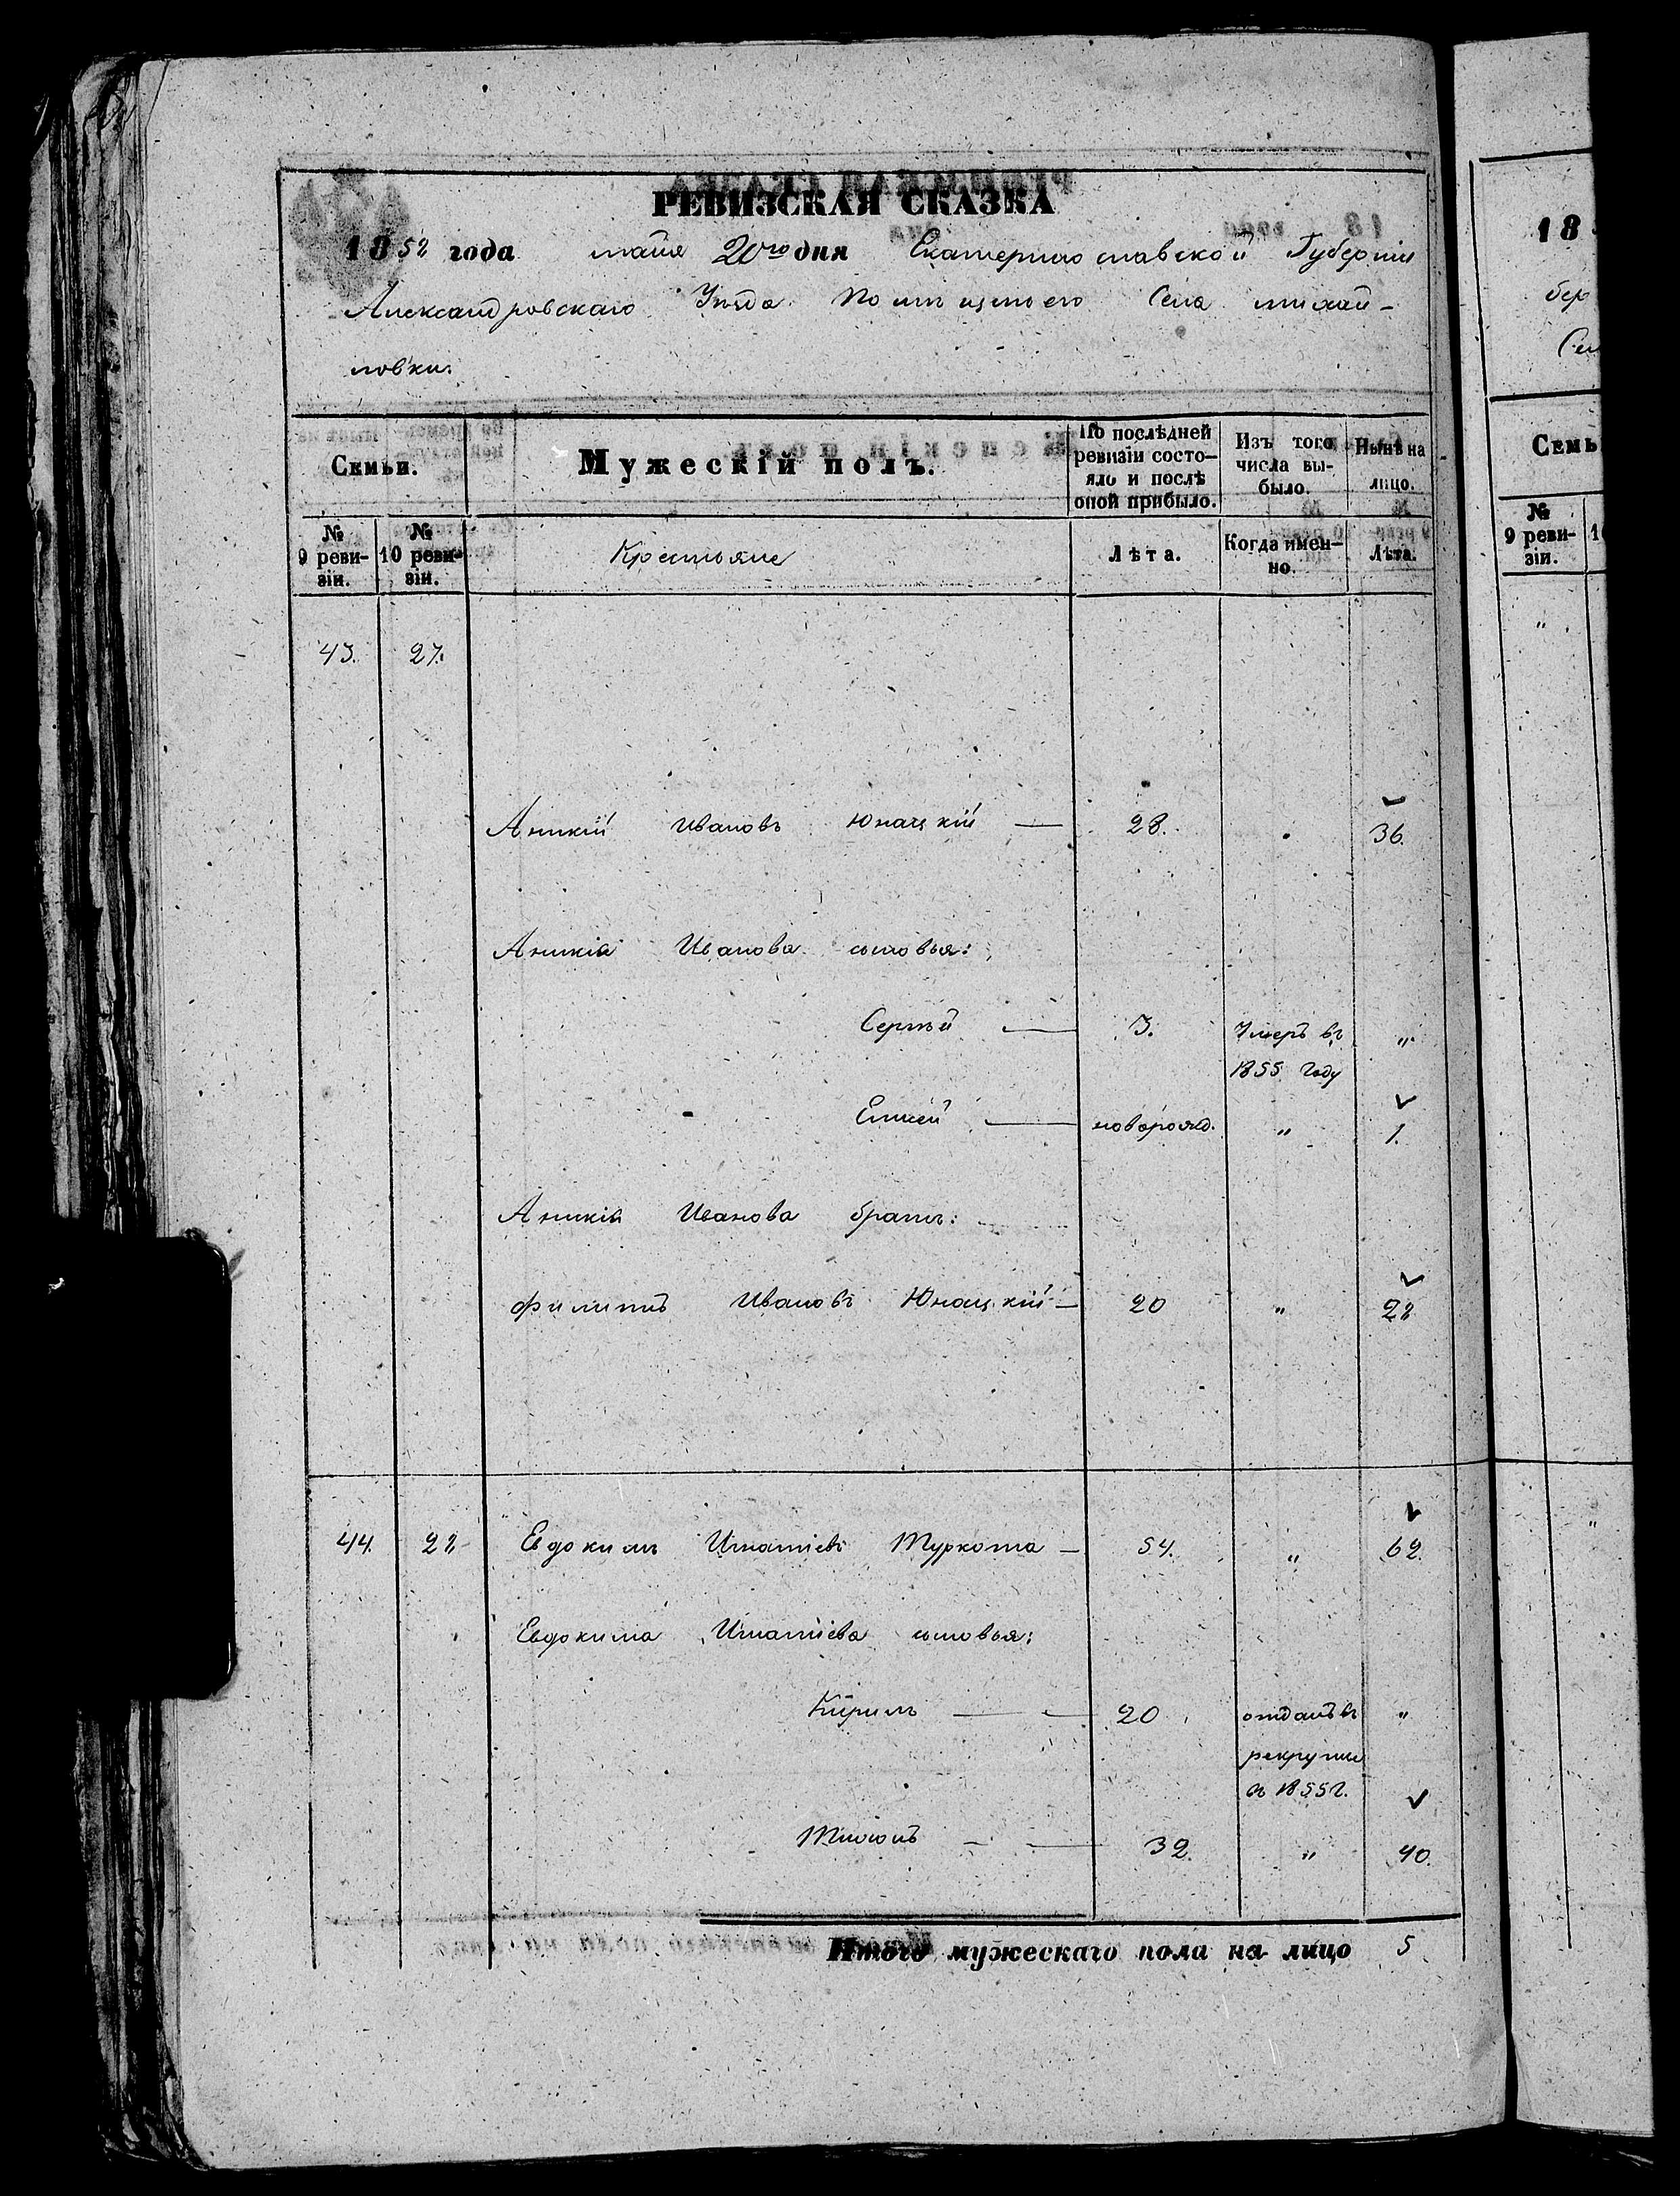 РЕВИЗСКАЯ СКАЗКА
1858 года маія 20го дня Екатеринославской Губерніи
Александровскаго Уѣзда Помѣщичьего Села михай-
ловки.
Семьи.
Мужескій полъ.
По послѣдней ревизіи состо-яло и послѣ оной прибыло.
Изъ того числа вы-было.
Нынѣ на лицо.
№ 9 реви-зіи.
№ 10 реви-зіи.
Крестьяне
Лѣта.
Когда имен-но.
Лѣта.
43. 27.
Аникій Ивановъ Юнацкій — 28. 36.
Аникія Иванова сыновья:
Сергѣй — 3. Умеръ въ „
1855 году
Елисей — новорожд. „ 1.
Аникія Иванова братъ:
Филиппъ Ивановъ Юнацкій — 20 „ 28
44. 28 Евдокимъ Игнатіевъ Туркота — 54. „ 62.
Евдокима Игнатіева сыновья:
Кирилъ — 20 отданъ въ „
рекруты
в 1855 г.
32. „ 40.
Итого мужескаго пола на лицо 5
18
бер
Сел
Семь
№ 9 реви-зіи.
1
„
„